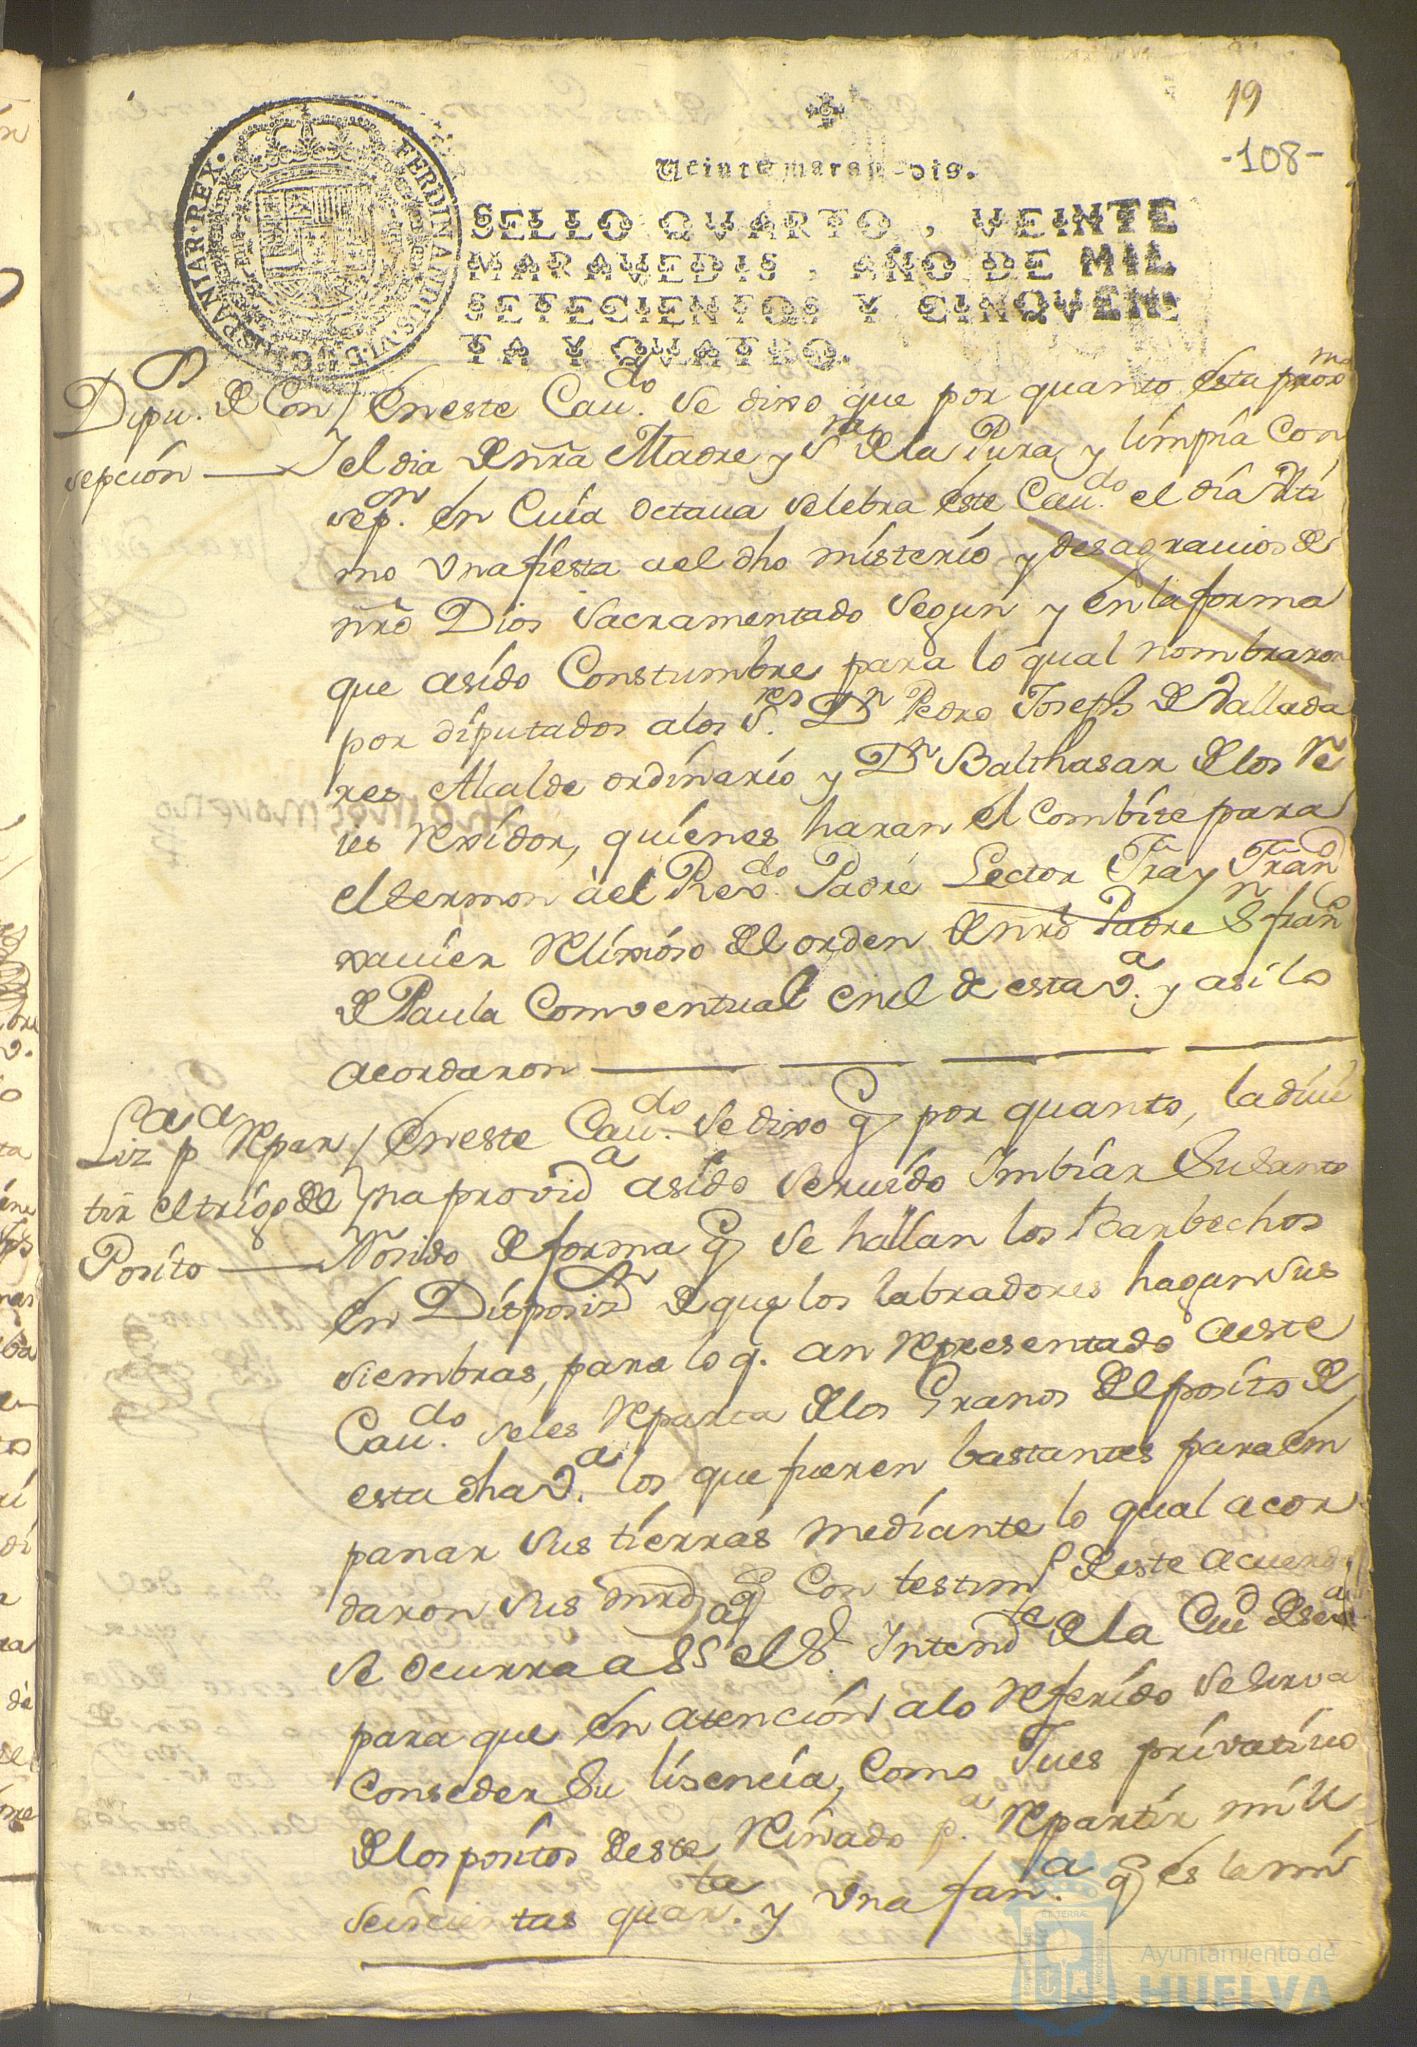 19
-108-
Veinte maravedis.
SELLO QVARTO, VEINTE
MARAVEDIS, AÑO DE MIL
SETECIENTOS Y CINQVEN
TA Y QVATRO.
HISPANIAR·REX· FERDINANDUS·VI·
Dipu. de Con
sepción
En este Cau.do se dixo que por quanto esta proxmo
el dia de nrã Madre y Sra de la Pura y limpia Con
sep.on en Cuia octaua selebra este Cau.do el dia Ulti
mo Una fiesta a el dho misterio y desagrauios de
nrõ Dios Sacramentado segun y en la forma
que asido Constumbre para lo qual nombraron
por diputados a los S.res Dn Pedro Joseph de Valleda
res Alcalde ordinario y Dn Balthasar de los Re
ies Rexidor, quienes haran el combite para
el sermon a el Revdo. Padre Lector Fray Fran
xauier Relixioso del orden de nrõ Padre Sn fran
de Paula Comventual en el de esta v.a y asi lo
acordaron
Liza pa Repar
tir el trigo del
Posito
En este Cau.do se dixo q por quanto, la diui
na provida asido seruido imbiar su santo
Rosido de forma q se hallan los Barbechos
en Disposizn de que los labradores hagan sus
siembras, para lo q. an representado a este
Cau.do se les reparta de los Granos del posito de
esta dha v.a los que fueren bastantes para em
panar sus tierras mediante lo qual acor
daron sus mrds q con testimo de este acuerdo
se ocurra a SS el Sr Intendte de la Ciud de Seva
para que en atencion a lo referido se sirva
conseder su lisencia, como Jues privatiuo
de los positos de este Reinado p.a Repartir mill
seiscientas quar.ta y Una fan.a q es la mi
Ayuntamiento de
HUELVA